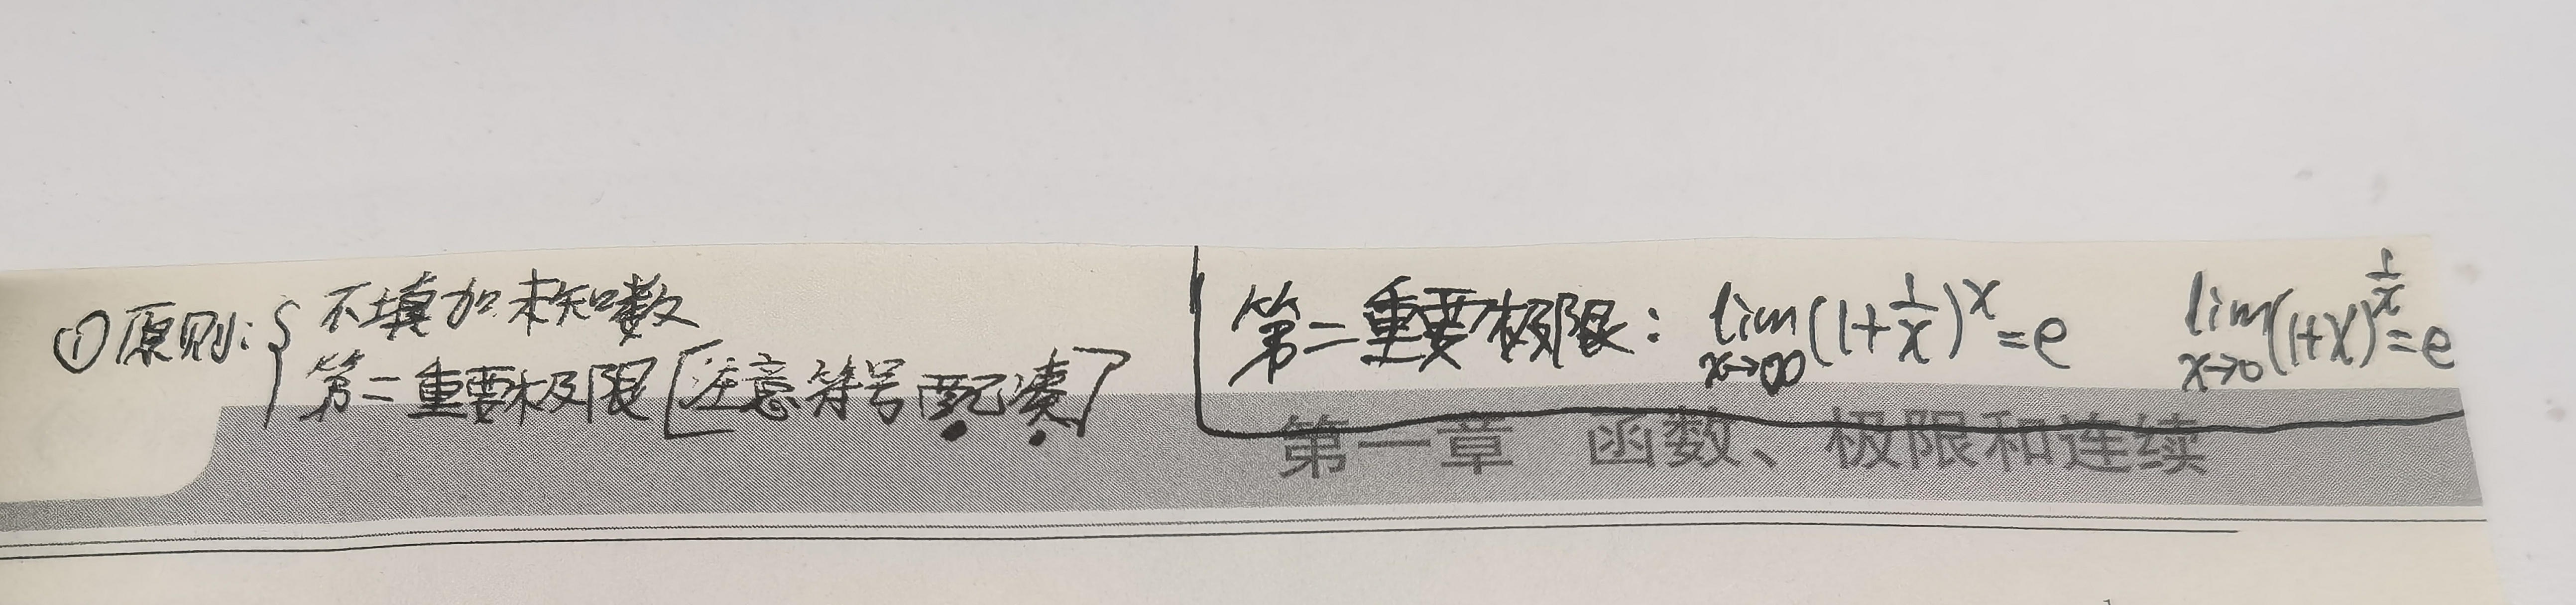 ①原则:{不填加未知数
第二重要极限[注意符号配凑]
第二重要极限: lim x→∞ (1+1/x)^x=e lim x→0 (1+x)^(1/x)=e
第一章 函数、极限和连续